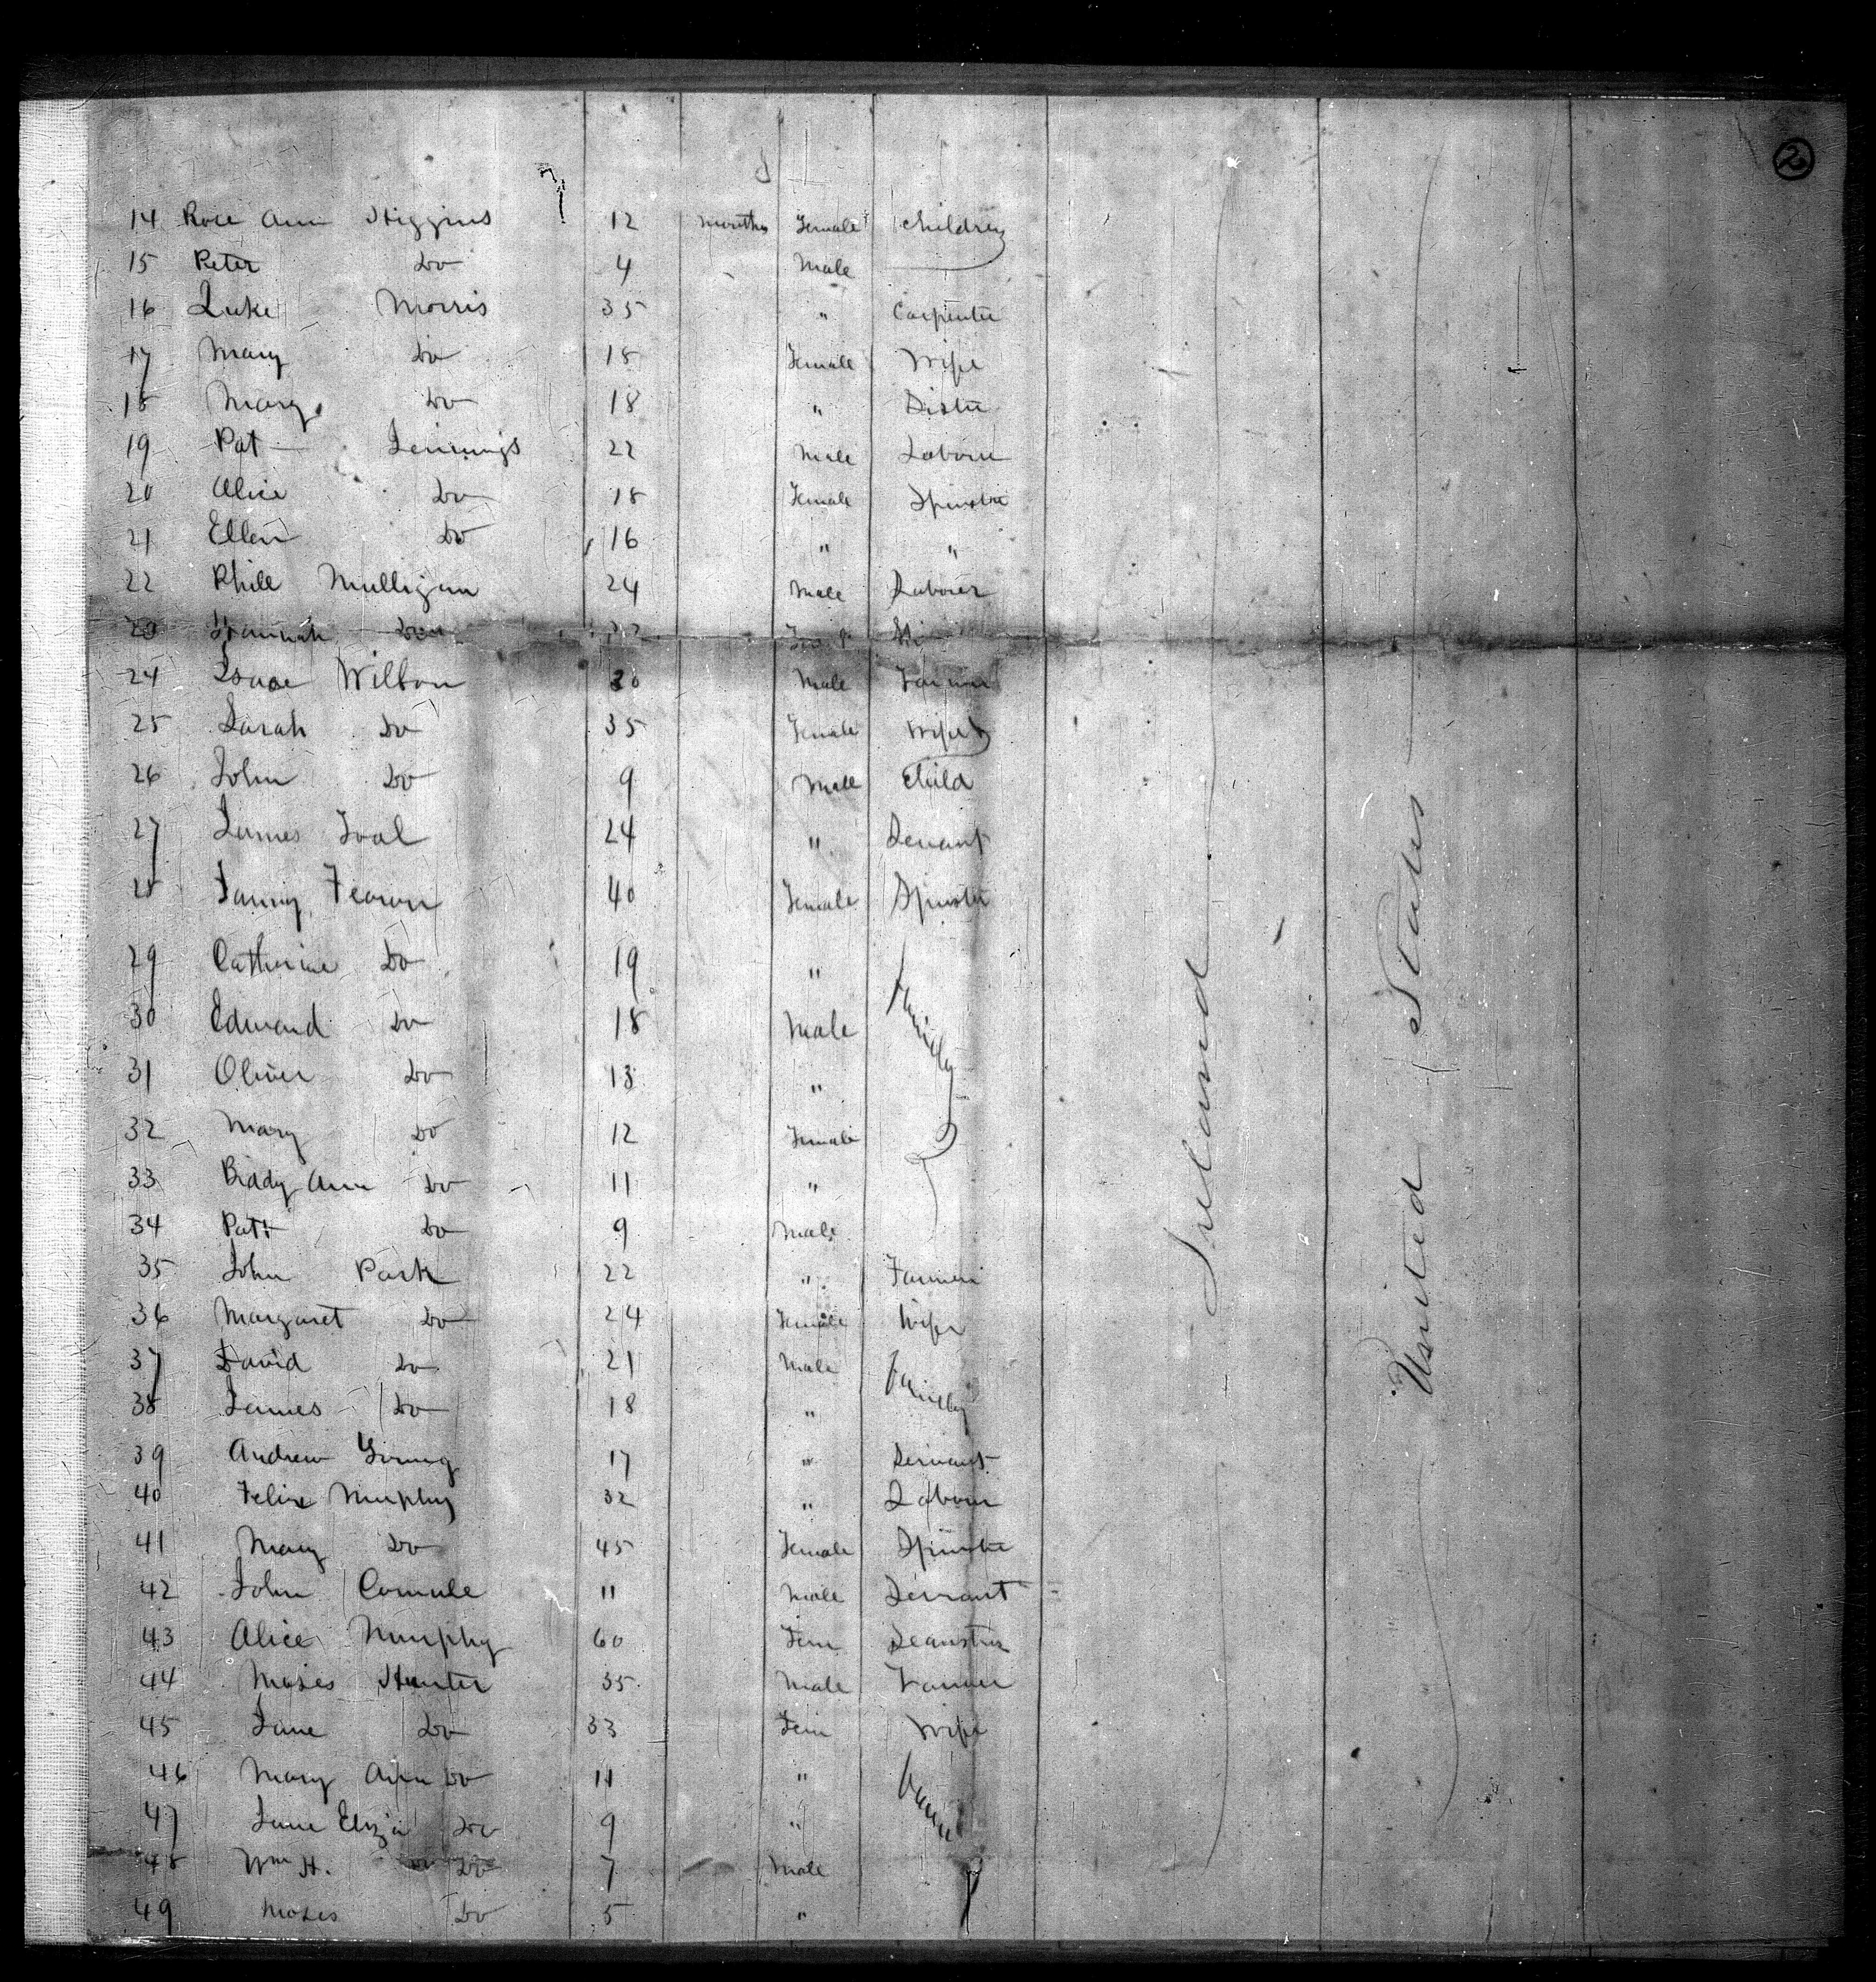 2
14 Rose Ann Higgins 12 months Female Children
15 Peter Do 4 Male
16 Luke Morris 35 " Carpenter
17 Mary Do 18 Female Wife
18 Mary Do 18 " Sister
19 Pat Jennings 22 Male Labourer
20 Alice Do 18 Female Spinster
21 Ellen Do 16 " "
22 Phill Mulligan 24 Male Labourer
23 Hannah Do
24 Isaac Wilson Male Farmer
25 Sarah Do 35 Female Wife
26 John Do 9 Male Child
27 James 24 " Servant
28 Fanny Fearon 40 Female Spinster
29 Catherine Do 19 "
30 Edward Do 18 Male Family
31 Oliver Do 13 "
32 Mary Do 12 Female
33 Biddy Ann Do 11 "
34 Patt Do 9 Male
35 John Park 22 " Farmer
36 Margaret Do 24 Female Wife
37 David Do 21 Male Family
38 James Do 18 "
39 Andrew Young 17 " Servant
40 Felix Murphy 32 " Labourer
41 Mary Do 45 Female Spinster
42 John 11 Male Servant
43 Alice Murphy 60 Fem Seamstress
44 Moses Hunter 35 Male Farmer
45 Jane Do 33 Fem Wife
46 Mary Ann Do 11 "
47 Jane Eliza Do 9 "
48 Wm H. Do 7 Male
49 Moses Do 5 "
Ireland
United States